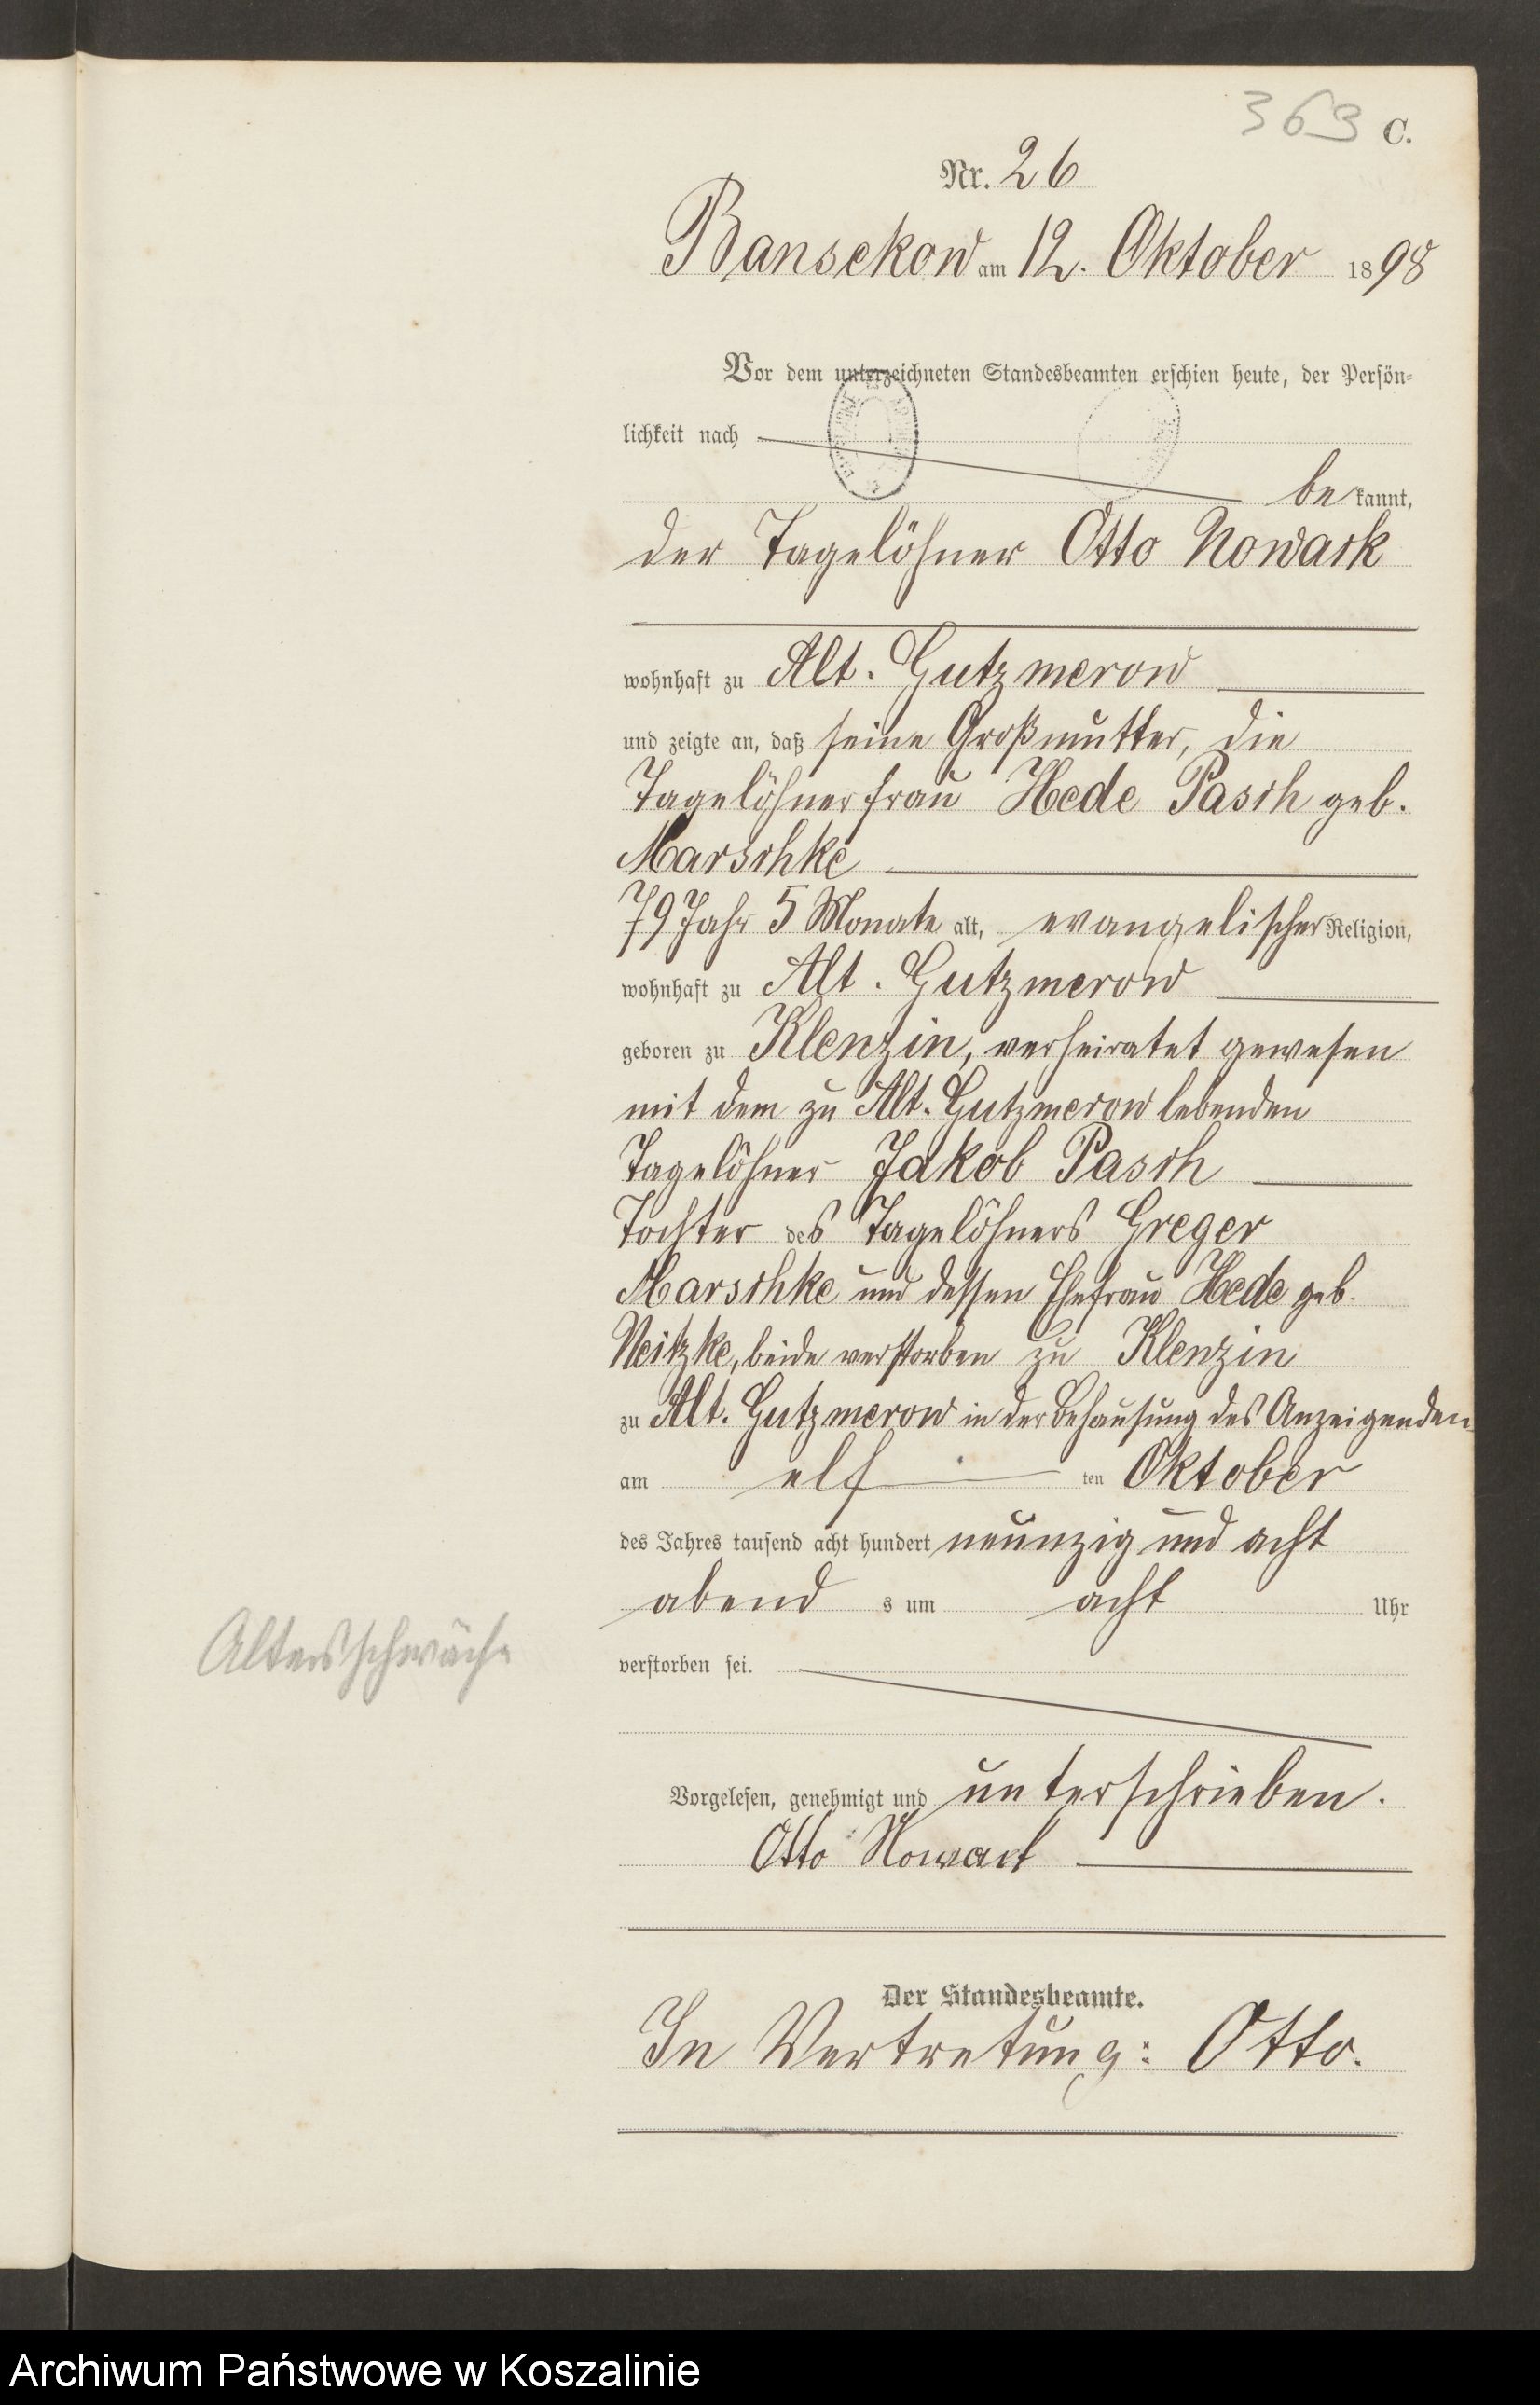 363 C.
Nr. 26
Bansekow am 12. Oktober 1898
Vor dem unterzeichneten Standesbeamten erschien heute, der Persön-
lichkeit nach
bekannt,
der Tagelöhner Otto Nowack
wohnhaft zu Alt. Gutzmerow
und zeigte an, daß seine Großmutter, die
Tagelöhnerfrau Hede Pasch geb.
Marschke
79 Jahr 5 Monate alt, evangelischer Religion,
wohnhaft zu Alt. Gutzmerow
geboren zu Klenzin, verheiratet gewesen
mit dem zu Alt. Gutzmerow lebenden
Tagelöhner Jakob Pasch
Tochter des Tagelöhners Greger
Marschke und dessen Ehefrau Hede geb.
Neitzke, beide verstorben zu Klenzin
zu Alt. Gutzmerow in der Behausung des Anzeigenden
am elf ten Oktober
des Jahres tausend acht hundert neunzig und acht
abend s um acht Uhr
Altersschwäche
verstorben sei.
Vorgelesen, genehmigt und unterschrieben.
Otto Nowack
Der Standesbeamte.
In Vertretung: Otto.
Archiwum Państwowe w Koszalinie